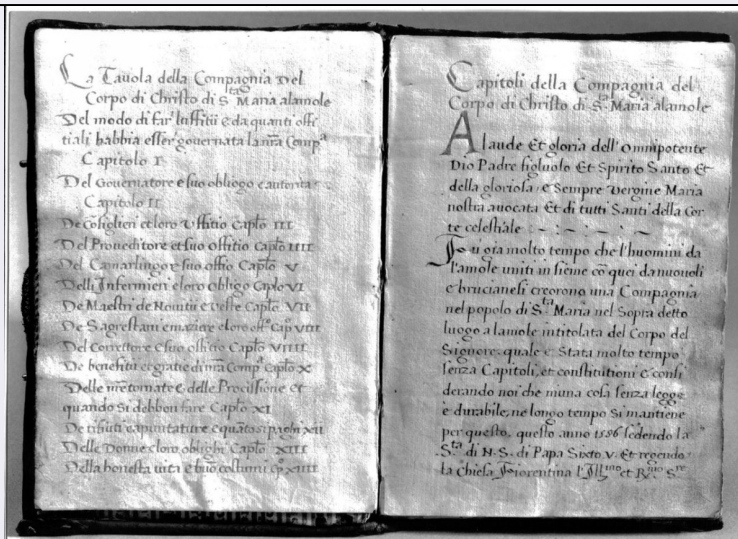 La Tauola della Compagnia Del
Corpo di Christo di S.ta Maria alamole
Del modo di far' luffitii e da quanti offi
tiali habbia esser' gouernata la nr̃a Comp.a
Capitolo I
Del Gouernatore e suo obligo e autorita
Capitolo II
De cõsiglieri et loro Uffitio Capl̃o III
Del Proueditore et suo offitio Capl̃o IIII
Del Camarlingo e suo offitio Capl̃o V
Delli Infermieri e loro obligo Caplo VI
De Maestri de Nouitii e veste Capl̃o VII
De Sagrestani e mazieri e loro off.o Cap.o VIII
Del Correttore e suo offitio Capl̃o VIIII
De benefitii et gratie di nr̃a Comp.a Capl̃o X
Delle nr̃e tornate e delle Processione et
quando si debbon fare Capl̃o XI
De tributi e apuntature e quãto si paghi XII
Delle Donne e loro oblighi Capl̃o XIII
Della honesta uita e buõ costumi cp.o XIIII
Capitoli della Compagnia del
Corpo di Christo di S.ta Maria alamole
A laude Et gloria dell'Omnipotente
Dio Padre figluolo Et Spirito Santo Et
della gloriosa e Sempre Vergine Maria
nostra auocata Et di tutti Santi della Cor
te celestiale
Fu gia molto tempo che l'huomini da
l'amole uniti insieme cõ quei da nuouoli
e brucianesi creorono una Compagnia
nel popolo di S.ta Maria nel Sopra detto
luogo a lamole intitolata del Corpo del
Signore, quale e Stata molto tempo
senza Capitoli, et constitutioni E consi
derando noi che niuna cosa senza legge
e durabile, ne longo tempo Si mantiene
per questo, questo anno 1586 sedendo la
S.ta di N. S. di Papa Sixto V. Et regendo
la Chiesa Fiorentina l'Ill.mo et R.mo S.re